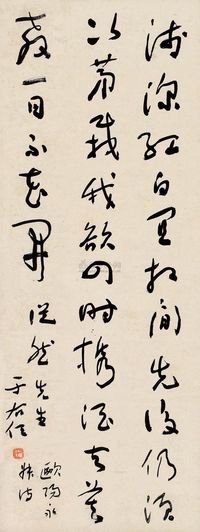 浅深红白宜相间先后仍须
次第栽我欲四时携酒去莫
教一日不花开 从然先生
欧阳永叔诗
于右任